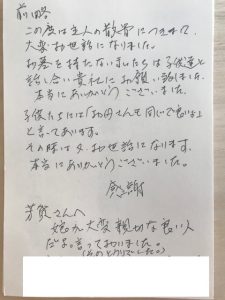 前略
この度は主人の散骨につきまして、
大変お世話になりました。
お墓を持たない私たちは子供達と
話し合い貴社にお願い致しました。
本当にありがとうございました。
子供たちには「お母さんも同じで良いよ」
と言ってあります。
その時は又、お世話になります。
本当にありがとうございました。
感謝
芳賀さんへ
娘が大変親切な良い人
だよ。言っておりました。
(そのとおりでした。)